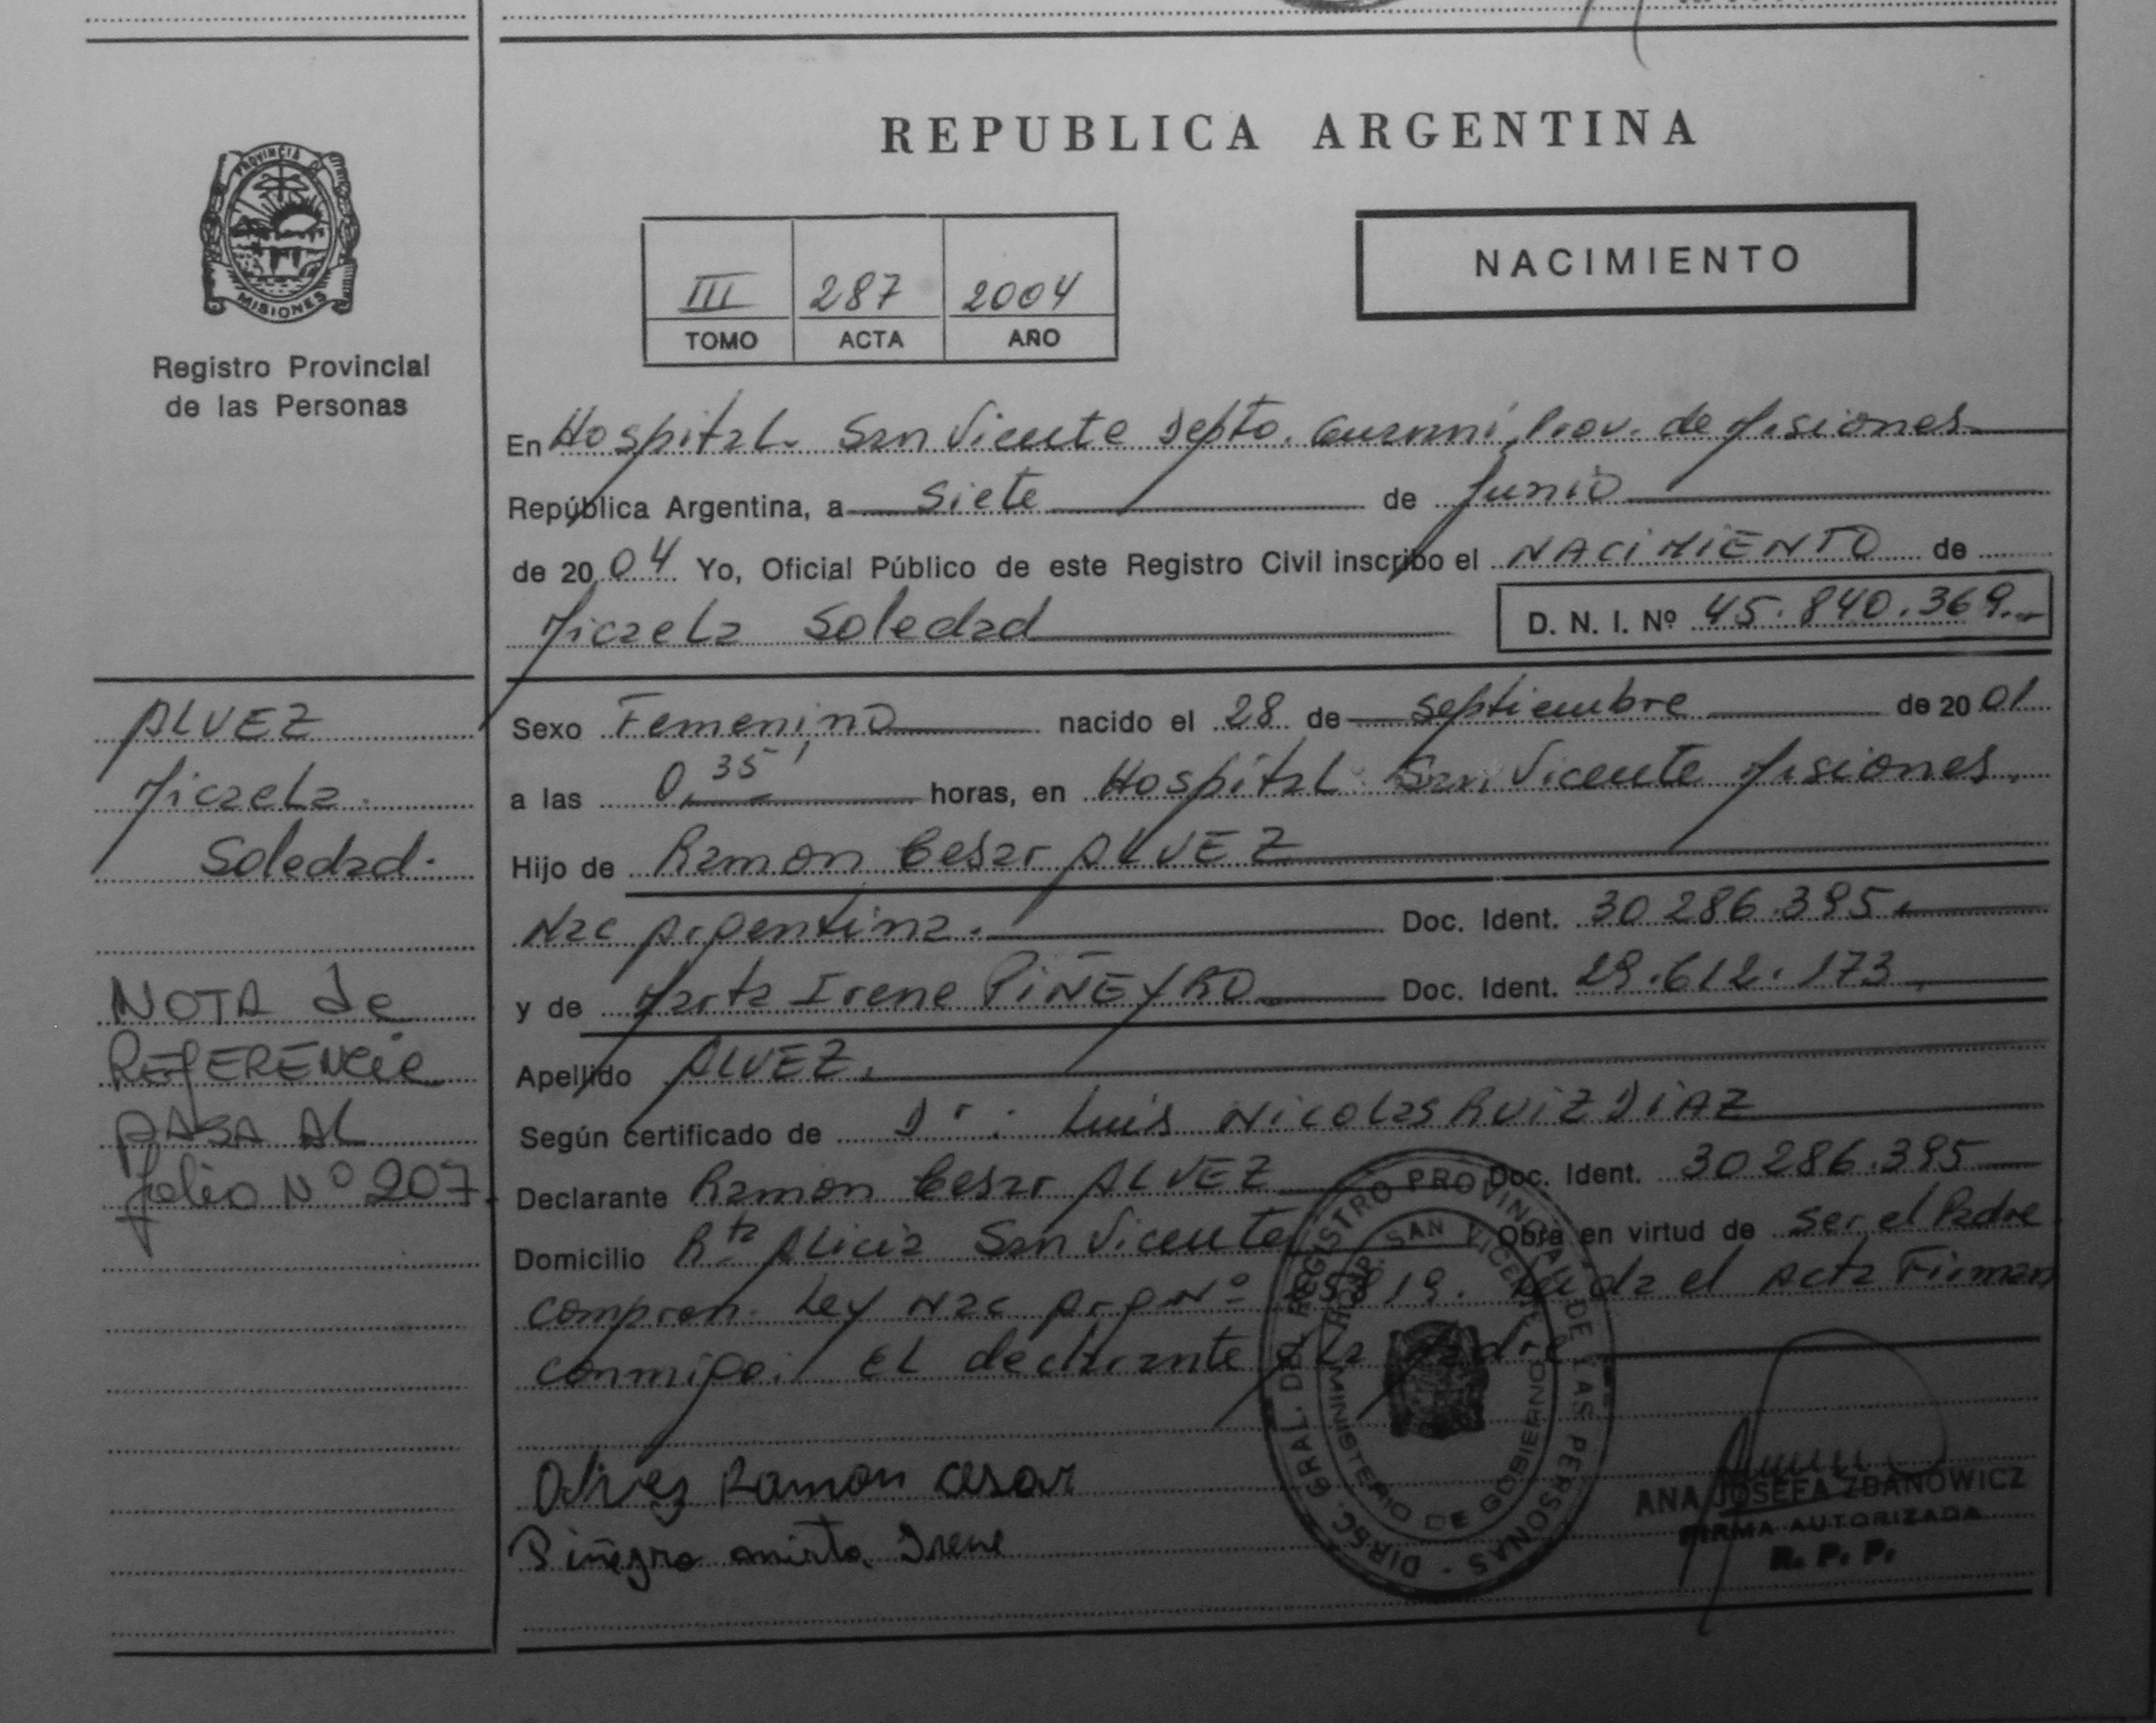 PROVINCIA DE
MISIONES
Registro Provincial
de las Personas
ALVEZ
Micaela
Soledad.
NOTA de
REFERENCIA
PASA AL
folio Nº 207.
REPUBLICA ARGENTINA
III 287 2004
TOMO ACTA AÑO
NACIMIENTO
En Hospital San Vicente Depto. Guarani, Prov. de Misiones
República Argentina, a Siete de Junio
de 2004 Yo, Oficial Público de este Registro Civil inscribo el NACIMIENTO de
Micaela Soledad D. N. I. Nº 45.840.369.-
Sexo Femenino nacido el 28 de Septiembre de 2001
a las 0,35' horas, en Hospital San Vicente Misiones.
Hijo de Ramon Cesar ALVEZ
Nac Argentina. Doc. Ident. 30 286.395.
y de Marta Irene PIÑEYRO Doc. Ident. 29.612.173
Apellido ALVEZ.
Según certificado de Dr: Luis Nicolas RUIZ DIAZ
Declarante Ramon Cesar ALVEZ Doc. Ident. 30 286.395
Domicilio Rta Alicia San Vicente Obra en virtud de ser el Padre
compren. Ley Nac Arg Nº 25819. Leida el Acta Firman
conmigo: El declarante y la Madre
Alvez Ramon Cesar
Piñeyro Mirta Irene
DIREC. GRAL. DEL REGISTRO PROVINCIAL DE LAS PERSONAS
HOSP. SAN VICENTE
MINISTERIO DE GOBIERNO
ANA JOSEFA ZDANOWICZ
FIRMA AUTORIZADA
R. P. P.